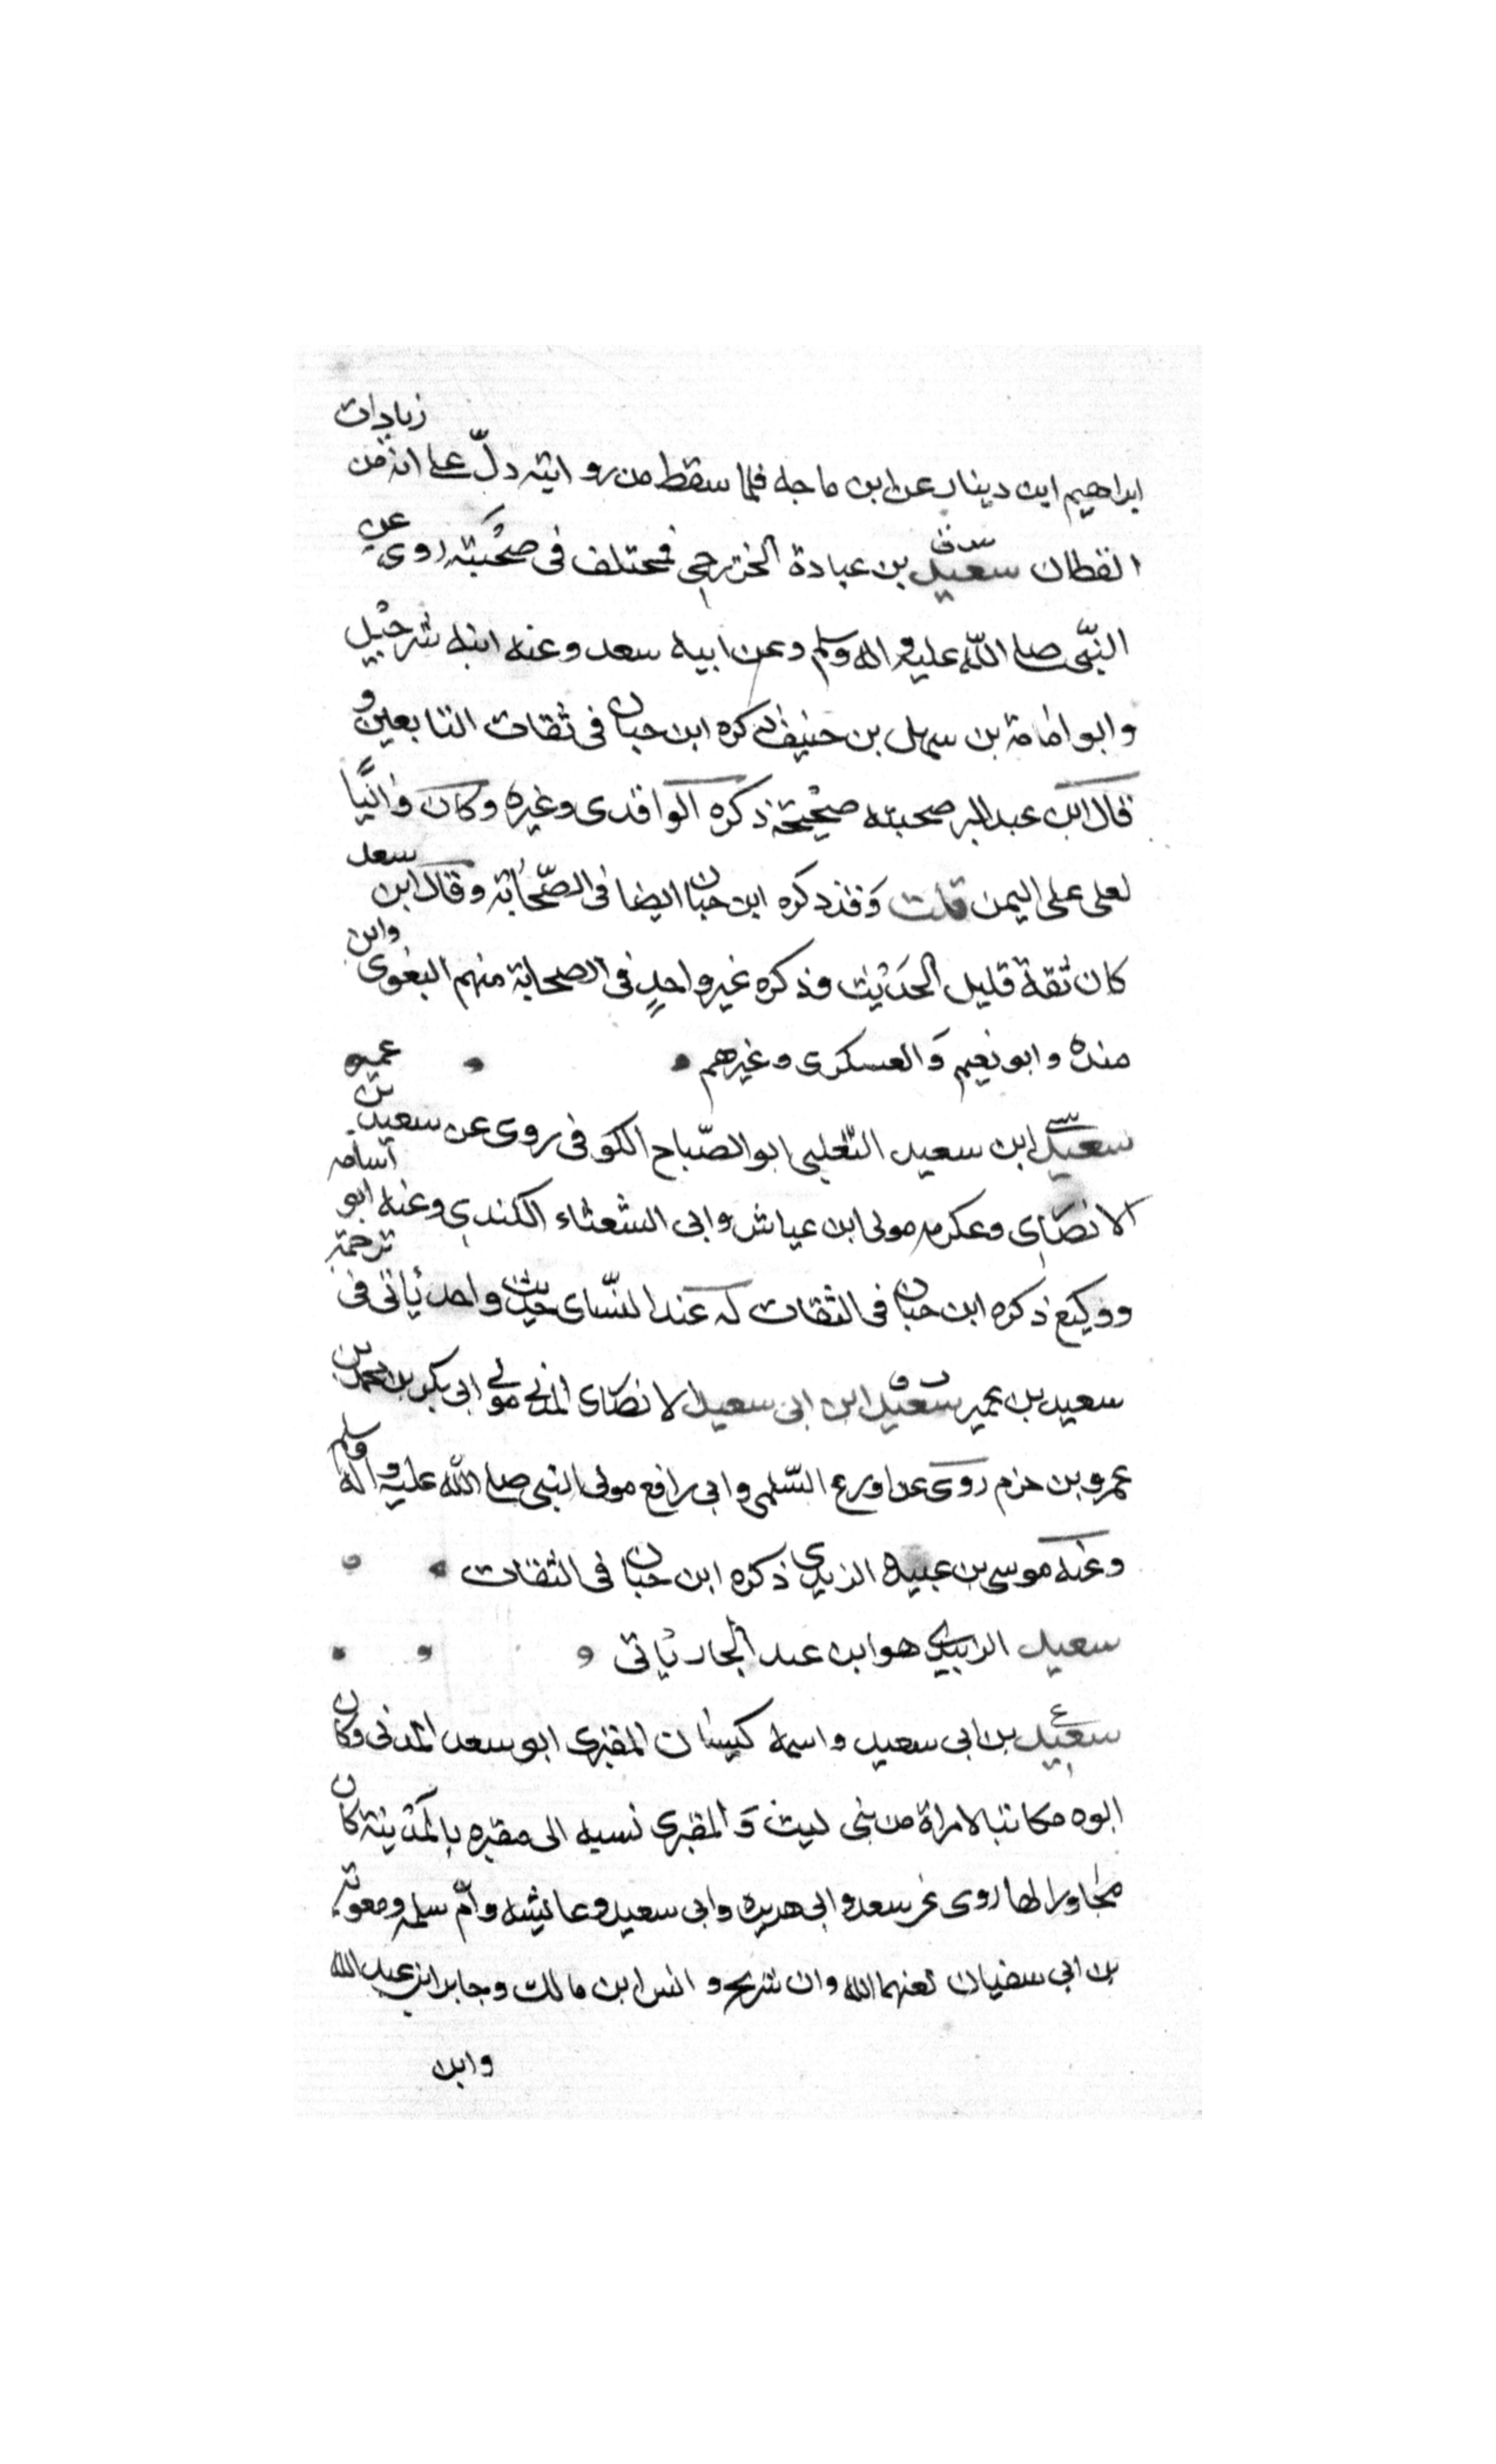 ابراهيم ابن دينار عن ابن ماجه فلما سقط من روايته دلّ على انه من زيادات
القطان سعيد بن عبادة الخزرجي مختلف فى صحبته روى عن
النبّي صلى اللّه عليه واله وسلم وعن ابيه سعد وعنه ابنه شرحبيل
وابو امامة بن سهل بن حنيف ذكره ابن حبان فى ثقات التابعين و
قال ابن عبد البر صحبته صحيحة ذكره الواقدى وغيره وكان واليًا
لعلى على اليمن قلت وَقد ذكره ابن حبان ايضا فى الصّحابة وقال ابن سعد
كان ثقة قليل الحَديث وذكره غير واحدٍ فى الصحابة منهم البغوى وابن
منده وابو نعيم وَالعسكرى وغيرهم
سعيد ابن سعيد التغلبى ابو الصّباح الكوفى روى عن سعيد بن عمير
الانصاى وعكرمه مولى ابن عياش وابى الشعثاء الكندي وعنه ابو اسامه
ووكيع ذكره ابن حبان فى الثقات له عند النسّاى حديث واحد ياتى فى ترجمة
سعيد بن عمير سعيد ابن ابى سعيد الانصاى المدنى مولى ابى بكر بن محمد بن
عمرو بن حزم روى عن اورع السّلمى وابى رافع مولى النبى صلى اللّه عليه واله وسلم
وعنه موسى بن عبيده الزيدي ذكره ابن حبان فى الثقات
سعيد الزبيدي هو ابن عبد الجار ياتى
سعيد بن ابى سعيد واسمه كيسان المقبرى ابو سعد المدنى وكان
ابوه مكاتبا لامراة من بنى ليث وَالمقبرى نسبه الى مقبره بالمدينة كان
مجاورا لها روى عن سعد وابى هريره وابى سعيد وعائيشه وامّ سلمه ومعوية
بن ابى سفيان لعنهما الله وان شريح و انس ابن مالك وجابر ابن عبد الله
وابن